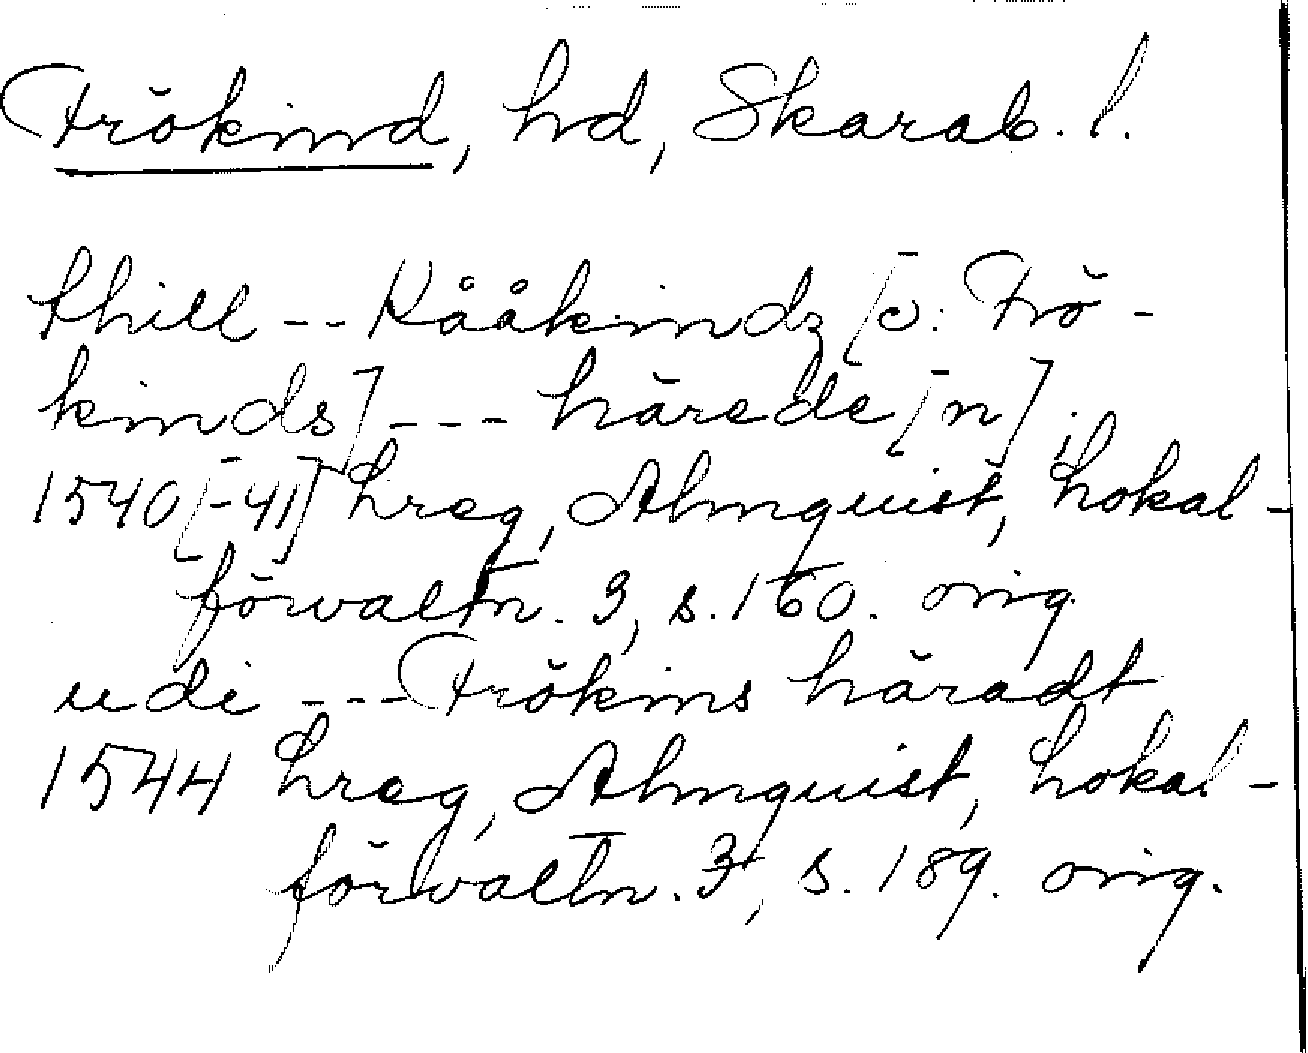 Frökind, hd, Skarab. l.
thill -- Kååkindz [ɔ: Frö-
kinds] --- härede[n].
1540[-41] Lreg, Almquist, Lokal-
förvaltn. 3, s. 160. orig
udi --- Frökins häradt
1544 Lreg, Almquist, Lokal-
förvaltn. 3, s. 189. orig.